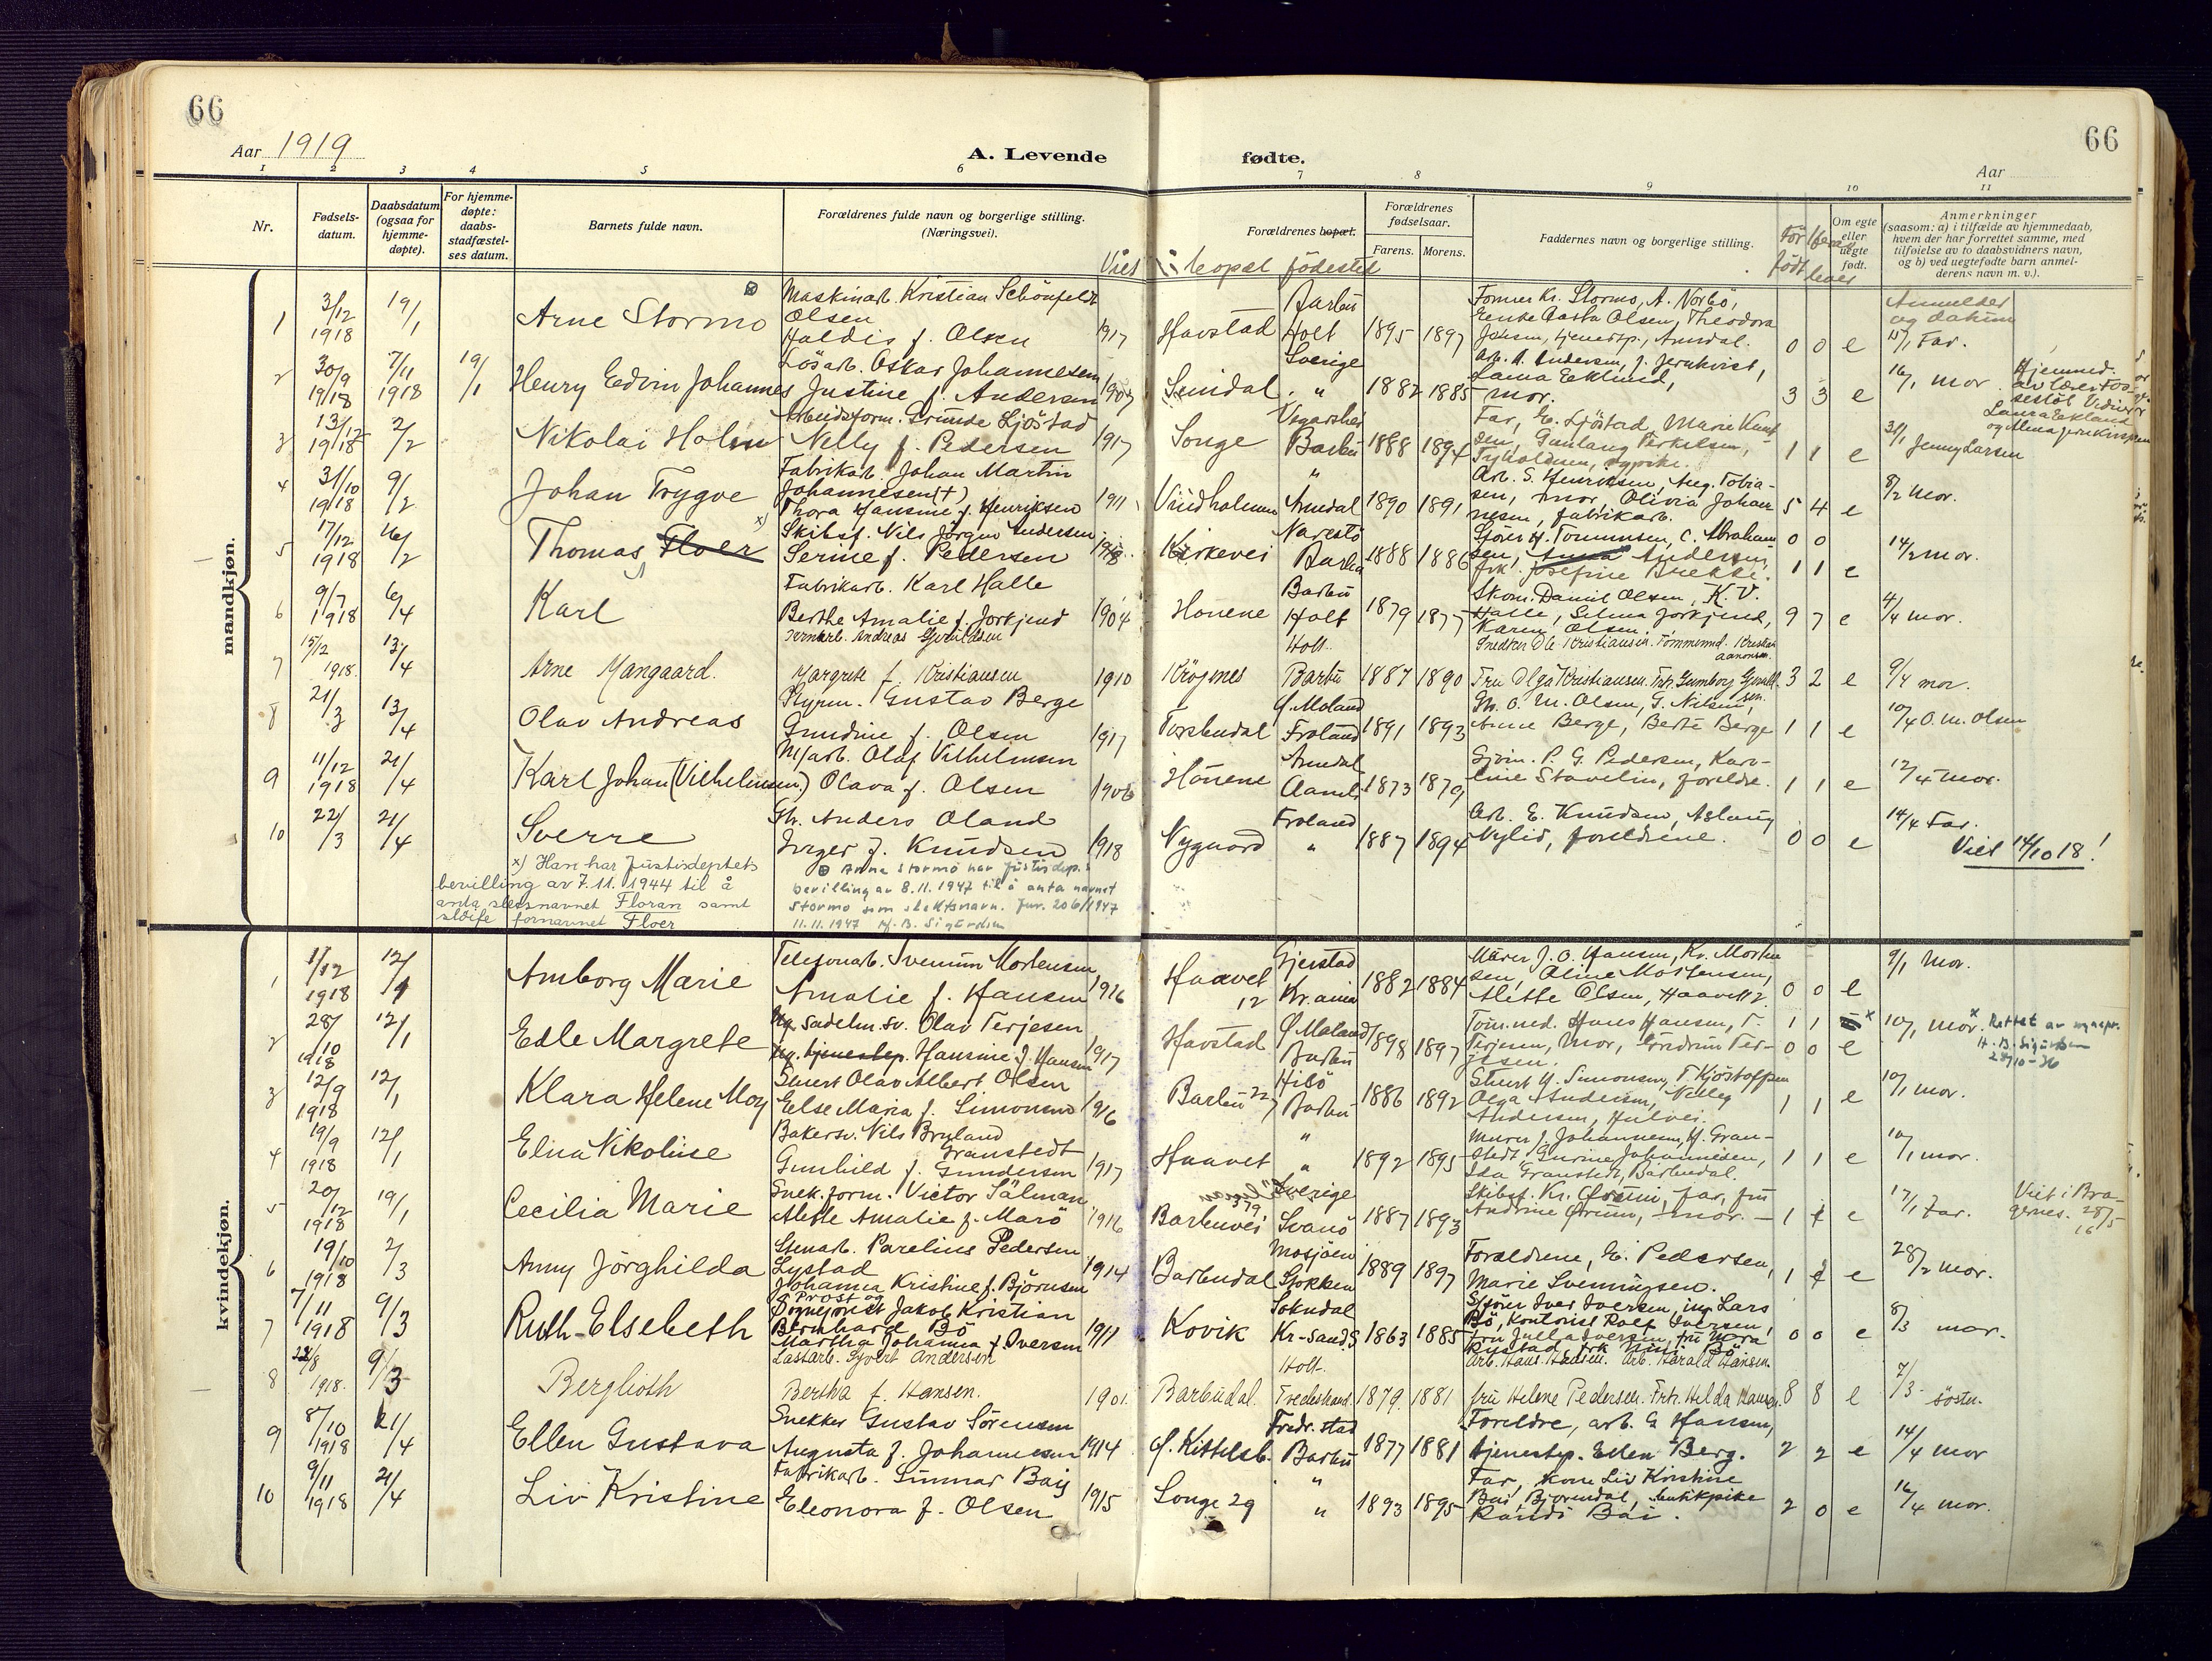 66
66
Aar 1919
A. Levende
fødte.
Aar
1 2 3 4 5 6 7 8 9 10 11
Nr.
Fødsels-
datum.
Daabsdatum
(ogsaa for
hjemme-
døpte).
For hjemme-
døpte:
daabs-
stadfæstel-
ses datum.
Barnets fulde navn.
Forældrenes fulde navn og borgerlige stilling.
(Næringsvei).
Viet
Forældrenes bopæl.
bopæl födested
Forældrenes
fødselsaar.
Farens. Morens.
Faddernes navn og borgerlige stilling.
Om egte
eller
uegte
født.
Anmerkninger
(saasom: a) i tilfælde av hjemmedaab,
hvem der har forrettet samme, med
tilføielse av to daabsvidners navn,
og b) ved uegtefødte barn anmel-
derens navn m. v.).
Anmelder
og datum
mandkjøn.
1 3/12 1918 19/1 Arne Stormo
Maskinarb. Kristian Schönfeldt
Olsen
Haldis f. Olsen 1917
Havstad Barbu Holt 1895 1897
Former Kr. Stormo, A. Norbö,
Enke Aasta Olsen, Theodora
Jensen, tjenestp., Arendal. 0 0 e
15/1 Far.
2 30/9 1918 7/11 1918 19/1 Henry Edvin Johannes
Lösarb. Oskar Johannesen
Justine f. Andersen 1907
Songe Sverige " 1882 1885
Arb. A. Andersen, J. Jernkvist,
Laura Eklund,
mor. 3 3 e
16/1 mor
Hjemmed.
av lærer Fos-
sestöl Vidner
Laura Eklund
3 13/12 1918 2/2 Nikolai Holm
Arbeidsform. Gunde Ljöstad
Nelly f. Pedersen 1917
Songe Vegarshei Barbu 1888 1894
Far, G. Ljöstad, Marie Knut
sen, Gunlaug Terkelsen,
Tyholmen, sypike. 1 1 e
31/1 Jenny Larsen
4 31/10 1918 9/2 Johan Trygve
Fabrikarb. Johan Martin
Johannesen (+)
Thora Hansine f. Henriksen 1911
Vindholmen " Arendal 1890 1891
Arb. S. Henriksen, Aug. Tobia-
sen, mor, Olivia Johan
nesen, fabrikarb. 5 4 e
8/2 mor.
5 17/12 1918 16/2 Thomas Floer x)
Skibsf. Nils Jörgen Andersen
Serine f. Pedersen 1918
Kirkevei Narestö Barbu 1888 1886
Sjöm H. Tommesen, C. Abraham
sen, Anna Andersen,
frk. Josefine Brekke. 0 0
1 1 e
14/2 mor.
6 9/7 1918 6/4 Karl
Fabrikarb. Karl Halle
Berthe Amalie f. Jorkjend 1904
Hönene Barbu Holt 1879 1877
Skom. Daniel Olsen, K. V.
Halle, Selma Jorkjend,
Karen Olsen. 9 7 e
4/4 mor.
7 15/12 1918 13/4 Arne Mangaard.
Jernarb. Andreas Gjeruldsen
Margrete f. Kristiansen 1910
Krögenes Holt Barbu 1887 1890
Snedker Ole Kristiansen. Tömmermd. Kristian
Aanonsen.
Fru Olga Kristiansen. Frk. Gunborg Gjeruld-
sen. 3 2 e
9/4 mor.
8 21/3 13/4 Olav Andreas
Styrm. Gustav Berge
Gundine f. Olsen 1917
Torsbudal Ö. Moland Froland 1891 1893
Gh. O. M. Olsen, G. Nilsen,
Anne Berge, Berte Berge 1 1 e
10/4 O. M. Olsen
9 11/12 1918 21/4 Karl Johan (Vilhelmsen)
M/arb. Olaf Vilhelmsen
Olava f. Olsen 1906
Hönene Arendal Aamli 1873 1879
Gjörm. P. G. Pedersen, Karo-
line Stavelin, foreldre. 1 1 e
12/4 mor.
10 22/3 21/4 Sverre
Gh. Anders Oland
Inger f. Knudsen 1918
Nygaard Froland " 1887 1894
Arb. E. Knudsen, Aslaug
Nylid, foreldrene. 0 0 e
14/4 Far.
Viet 14/10 18!
x) Han har Justisdeptets
bevilling av 7.11.1944 til å
anta slektsnavnet Floran samt
slöife fornavnet Floer
⊗ Arne Stormo har Justisdep.s
bevilling av 8.11.1947 til å anta navnet
Stormo som slektsnavn. Jnr. 206/1947
11.11.1947 H. B. Sigurdsen
kvindekjøn.
1 1/12 1918 12/1 Amborg Marie
Telefonarb. Svenum Mortensen
Amalie f. Hansen 1916
Haavet 12 Gjerstad Kr.ania 1882 1884
Murer J. O. Hansen, Kr. Morten
sen, Oline Mortensen,
Alette Olsen, Haavet 2. 0 0 e
9/1 mor.
2 28/10 1918 12/1 Edle Margrete
Ug. Sadelm.sv. Olav Terjesen
Ug. tjenestep. Hansine f. Hansen 1917
Havstad Ö Moland Barbu 1898 1897
Töm.md. Hans Hansen, T.
Terjesen, mor, Gudrun Ter-
jesen. 1 1
0 0 e
10/1 mor. x Rettet av sognepr.
H. B. Sigurdsen
28/10-36
3 12/9 1918 12/1 Klara Helene Moy
Stuert Olav Albert Olsen
Else Maria f. Simonsen 1916
Barbu 22 Hisö Barbu 1886 1892
Stuert H. Simonsen, T. Kjöstoffsen
Olga Andersen, Nelley
Andersen, Hulvei. 1 1 e
10/1 mor.
4 19/9 1918 12/1 Elna Nikoline
Bakersv. Nils Bryland
Granstedt
Gunhild f. Gundersen 1917
Haavet " " 1892 1895
Murer J. Johannesen, H. Gran-
stedt, Gurine Johannesen,
Ida Granstedt, Barbudal. 1 1 e
10/1 mor.
5 20/12 1918 19/1 Cecilia Marie
Snek.form. Victor Sälman
Alette Amalie f. Marö 1916
Barbuvei 379 Sverige Svanö 1887 1893
Skibsf. Kr. Örum, far, fru
Andrine Örum, mor. 1 1 e
17/1 Far.
Viet i Bra-
gernes. 28/5
16
6 19/10 1918 2/3 Anny Jörghilda
Stenarb. Parelius Pedersen
Lystad
Johanna Kristine f. Björnsen 1914
Barbudal Mosjöen Stokken 1889 1897
Forældrene, G. Pedersen,
Marie Svenningsen. 1 1 e
28/2 mor.
7 7/11 1918 9/3 Ruth-Elsebeth
Prost og
Sogneprest Jakob Kristian
Bernhard Bö
Martha Johanna f. Iversen 1911
Kovik Sokndal Kr-Sand S 1863 1885
Skfører Iver Iversen, ing Lars
Bö, Kontorist Rolf Iversen,
fru Julla Iversen, fru Mara
Rustad, frk Nini Bö 0 0 e
8/3 mor.
8 22/8 1918. 9/3 Berglioth
Lastarb. Syvert Andersen
Bertha f. Hansen. 1901.
Barbudal. Holt. Tvedestrand. 1879. 1881
Arb. Hans Hansen. Arb. Harald Hansen.
fru Helene Pedersen. Frk. Hilda Hansen. 8 8 e
7/3 söster.
9 8/10 1918 21/4 Ellen Gustava
Snekker Gustav Sörensen
Augusta f. Johannesen 1914
Ö. Kittelsb. Fredr.stad Barbu 1877 1881
Foreldre, arb. G Hansen,
tjenestp. Ellen Berg. 2 2 e
14/4 mor
10 9/11 1918 21/4 Liv Kristine
Fabrikarb. Gunnar Baij
Eleonora f. Olsen 1915
Songe 29 " " 1893 1895
Far, kone Liv Kristine
Bai, Bjorendal, butikpike
Randi Bai. 2 0 e
16/4 mor.